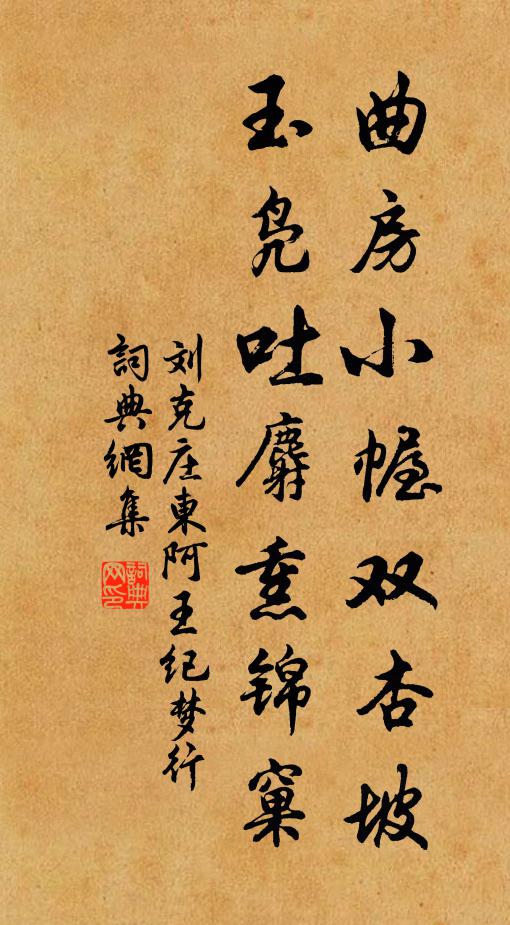 曲房小幄双杏坡
玉凫吐麝熏锦窠
刘克庄東阿王纪梦行
詞典網集
詞典网印